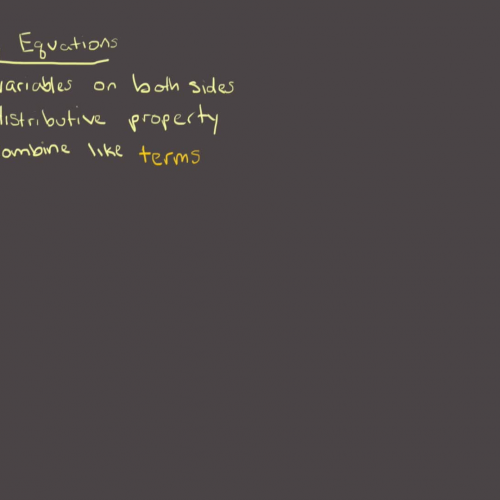 Equations
variables on both sides
distributive property
ombine like terms